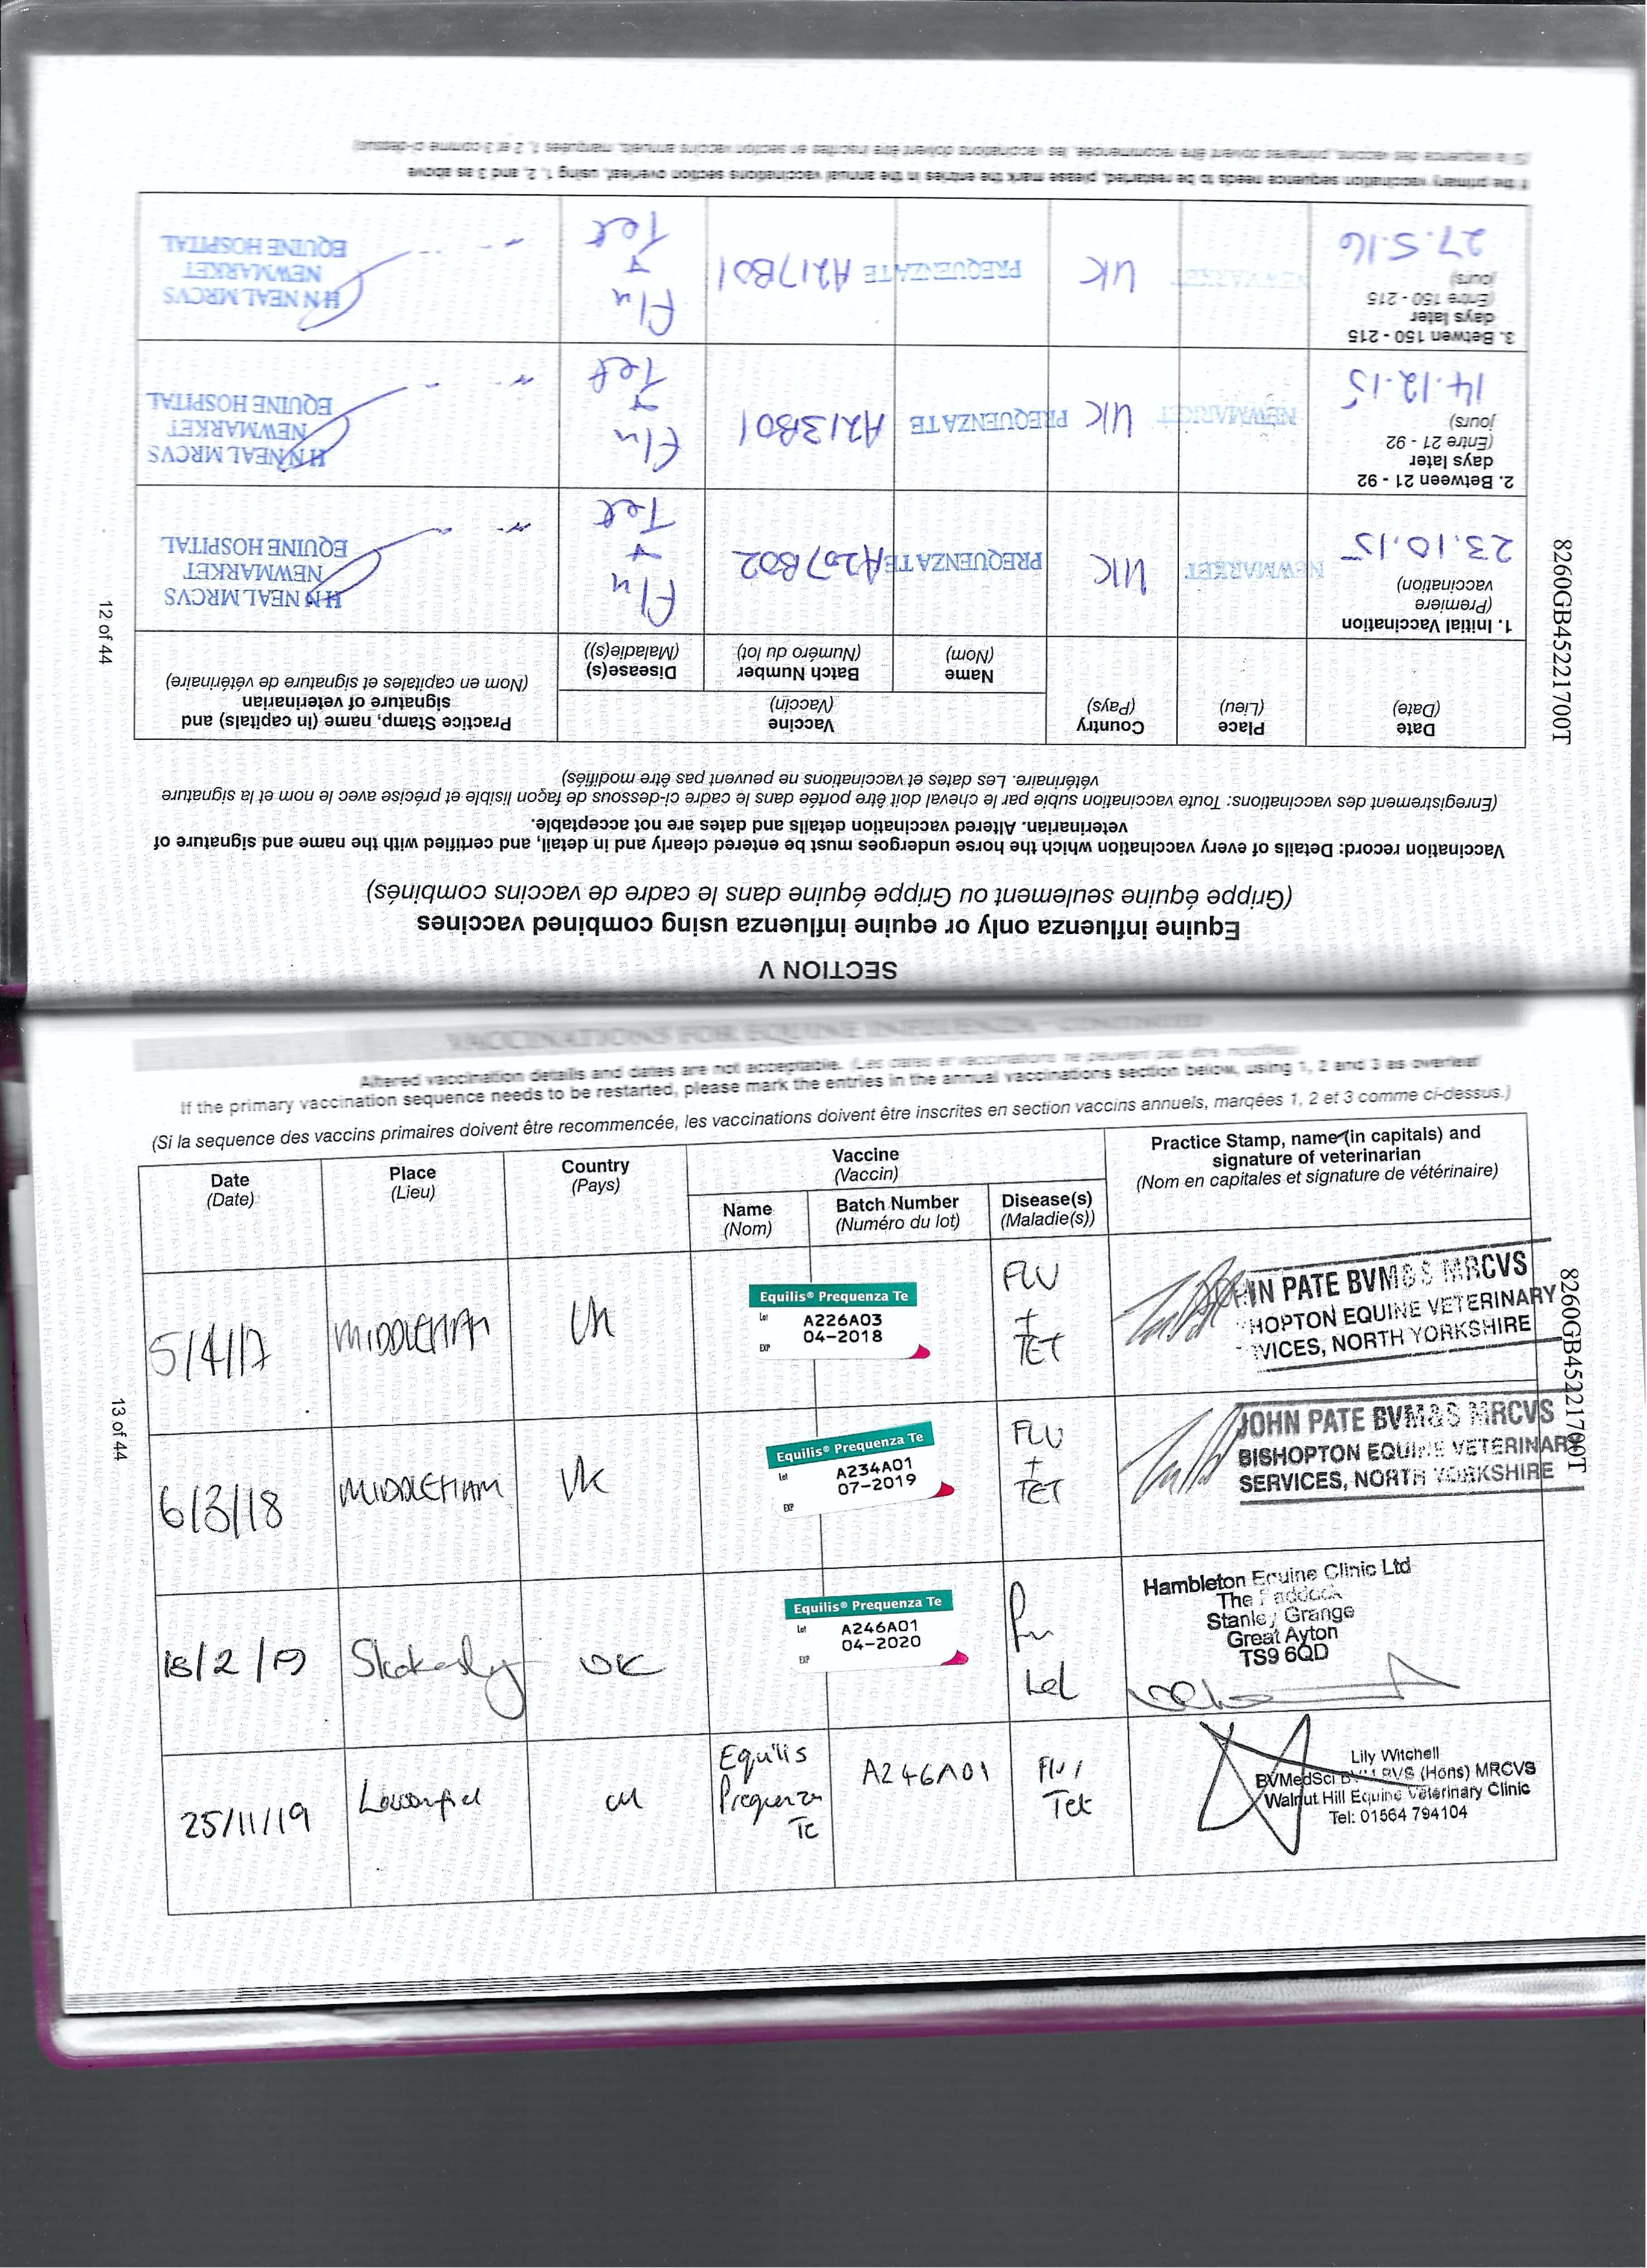 SECTION V
Equine influenza only or equine influenza using combined vaccines
(Grippe équine seulement ou Grippe équine dans le cadre de vaccins combinés)
Vaccination record: Details of every vaccination which the horse undergoes must be entered clearly and in detail, and certified with the name and signature of
veterinarian. Altered vaccination details and dates are not acceptable.
(Enregistrement des vaccinations: Toute vaccination subie par le cheval doit être portée dans le cadre ci-dessous de façon lisible et précise avec le nom et la signature
vétérinaire. Les dates et vaccinations ne peuvent pas être modifiés)
Date
(Date)
Place
(Lieu)
Country
(Pays)
Vaccine
(Vaccin)
Name
(Nom)
Batch Number
(Numéro du lot)
Disease(s)
(Maladie(s))
Practice Stamp, name (in capitals) and
signature of veterinarian
(Nom en capitales et signature de vétérinaire)
1. Initial Vaccination
(Premiere
vaccination)
23.10.15
NEWMARKET
UK
PREQUENZA TE
A207B02
Flu
+
Tet
H N NEAL MRCVS
NEWMARKET
EQUINE HOSPITAL
2. Between 21 - 92
days later
(Entre 21 - 92
jours)
14.12.15
NEWMARKET
UK
PREQUENZA TE
A213B01
Flu
+
Tet
H N NEAL MRCVS
NEWMARKET
EQUINE HOSPITAL
3. Betwen 150 - 215
days later
(Entre 150 - 215
jours)
27.5.16
NEWMARKET
UK
PREQUENZA TE
A217B01
Flu
+
Tet
H N NEAL MRCVS
NEWMARKET
EQUINE HOSPITAL
If the primary vaccination sequence needs to be restarted, please mark the entries in the annual vaccinations section overleaf, using 1, 2, and 3 as above
(Si la sequence des vaccins, primaires doivent être recommencée, les vaccinations doivent être inscrites en section vaccins annuels, marquées 1, 2 et 3 comme ci-dessus)
12 of 44
8260GB45221700T
VACCINATIONS FOR EQUINE INFLUENZA - CONTINUED
Altered vaccination details and dates are not acceptable. (Les dates et vaccinations ne peuvent pas être modifiés)
If the primary vaccination sequence needs to be restarted, please mark the entries in the annual vaccinations section below, using 1, 2 and 3 as overleaf
(Si la sequence des vaccins primaires doivent être recommencée, les vaccinations doivent être inscrites en section vaccins annuels, marqées 1, 2 et 3 comme ci-dessus.)
Date
(Date)
Place
(Lieu)
Country
(Pays)
Vaccine
(Vaccin)
Name
(Nom)
Batch Number
(Numéro du lot)
Disease(s)
(Maladie(s))
Practice Stamp, name (in capitals) and
signature of veterinarian
(Nom en capitales et signature de vétérinaire)
5/4/17
MIDDLEHAM
UK
Equilis® Prequenza Te
Lot
A226A03
04-2018
EXP
FLU
+
TET
HN PATE BVM&S MRCVS
HOPTON EQUINE VETERINARY
VICES, NORTH YORKSHIRE
6/3/18
MIDDLEHAM
UK
Equilis® Prequenza Te
Lot
A234A01
07-2019
EXP
FLU
+
TET
JOHN PATE BVM&S MRCVS
BISHOPTON EQUINE VETERINARY
SERVICES, NORTH YORKSHIRE
18/2/19
Stokesley
UK
Equilis® Prequenza Te
Lot
A246A01
04-2020
EXP
Flu
tet
Hambleton Equine Clinic Ltd
The Paddock
Stanley Grange
Great Ayton
TS9 6QD
25/11/19
UK
Equilis
Prequenza
Te
A246A01
Flu /
Tet
Lily Witchell
BVMedSci BVM BVS (Hons) MRCVS
Walnut Hill Equine Veterinary Clinic
Tel: 01564 794104
13 of 44
8260GB45221700T